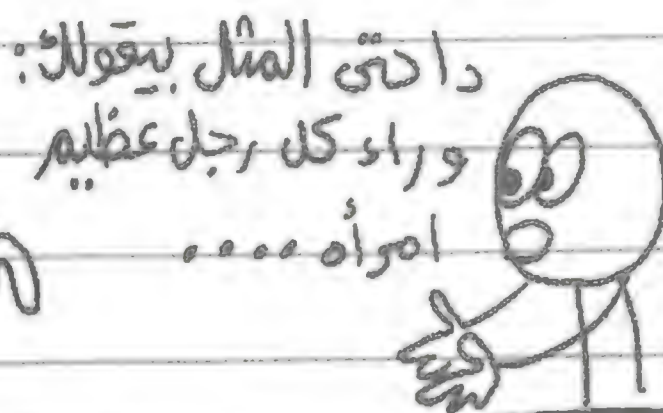 داحتى المثل بيقولك:
وراء كل رجل عظيم
امرأه ....